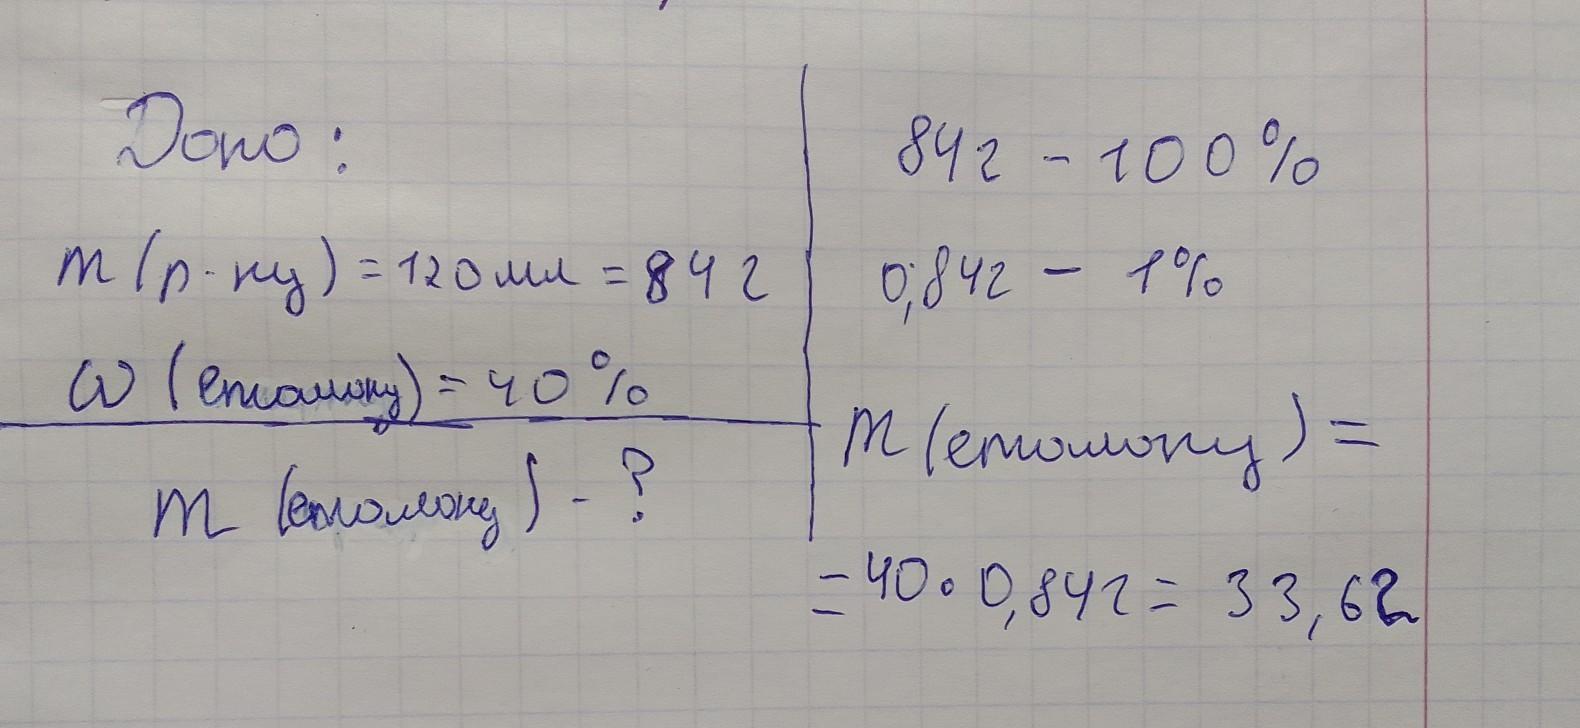 Дано:
m (р-ну) = 120 мл = 84 г
ω (етанолу) = 40%
m (етанолу) - ?
84 г - 100%
0,84 г - 1%
m (етанолу) =
= 40 · 0,84 г = 33,6 г